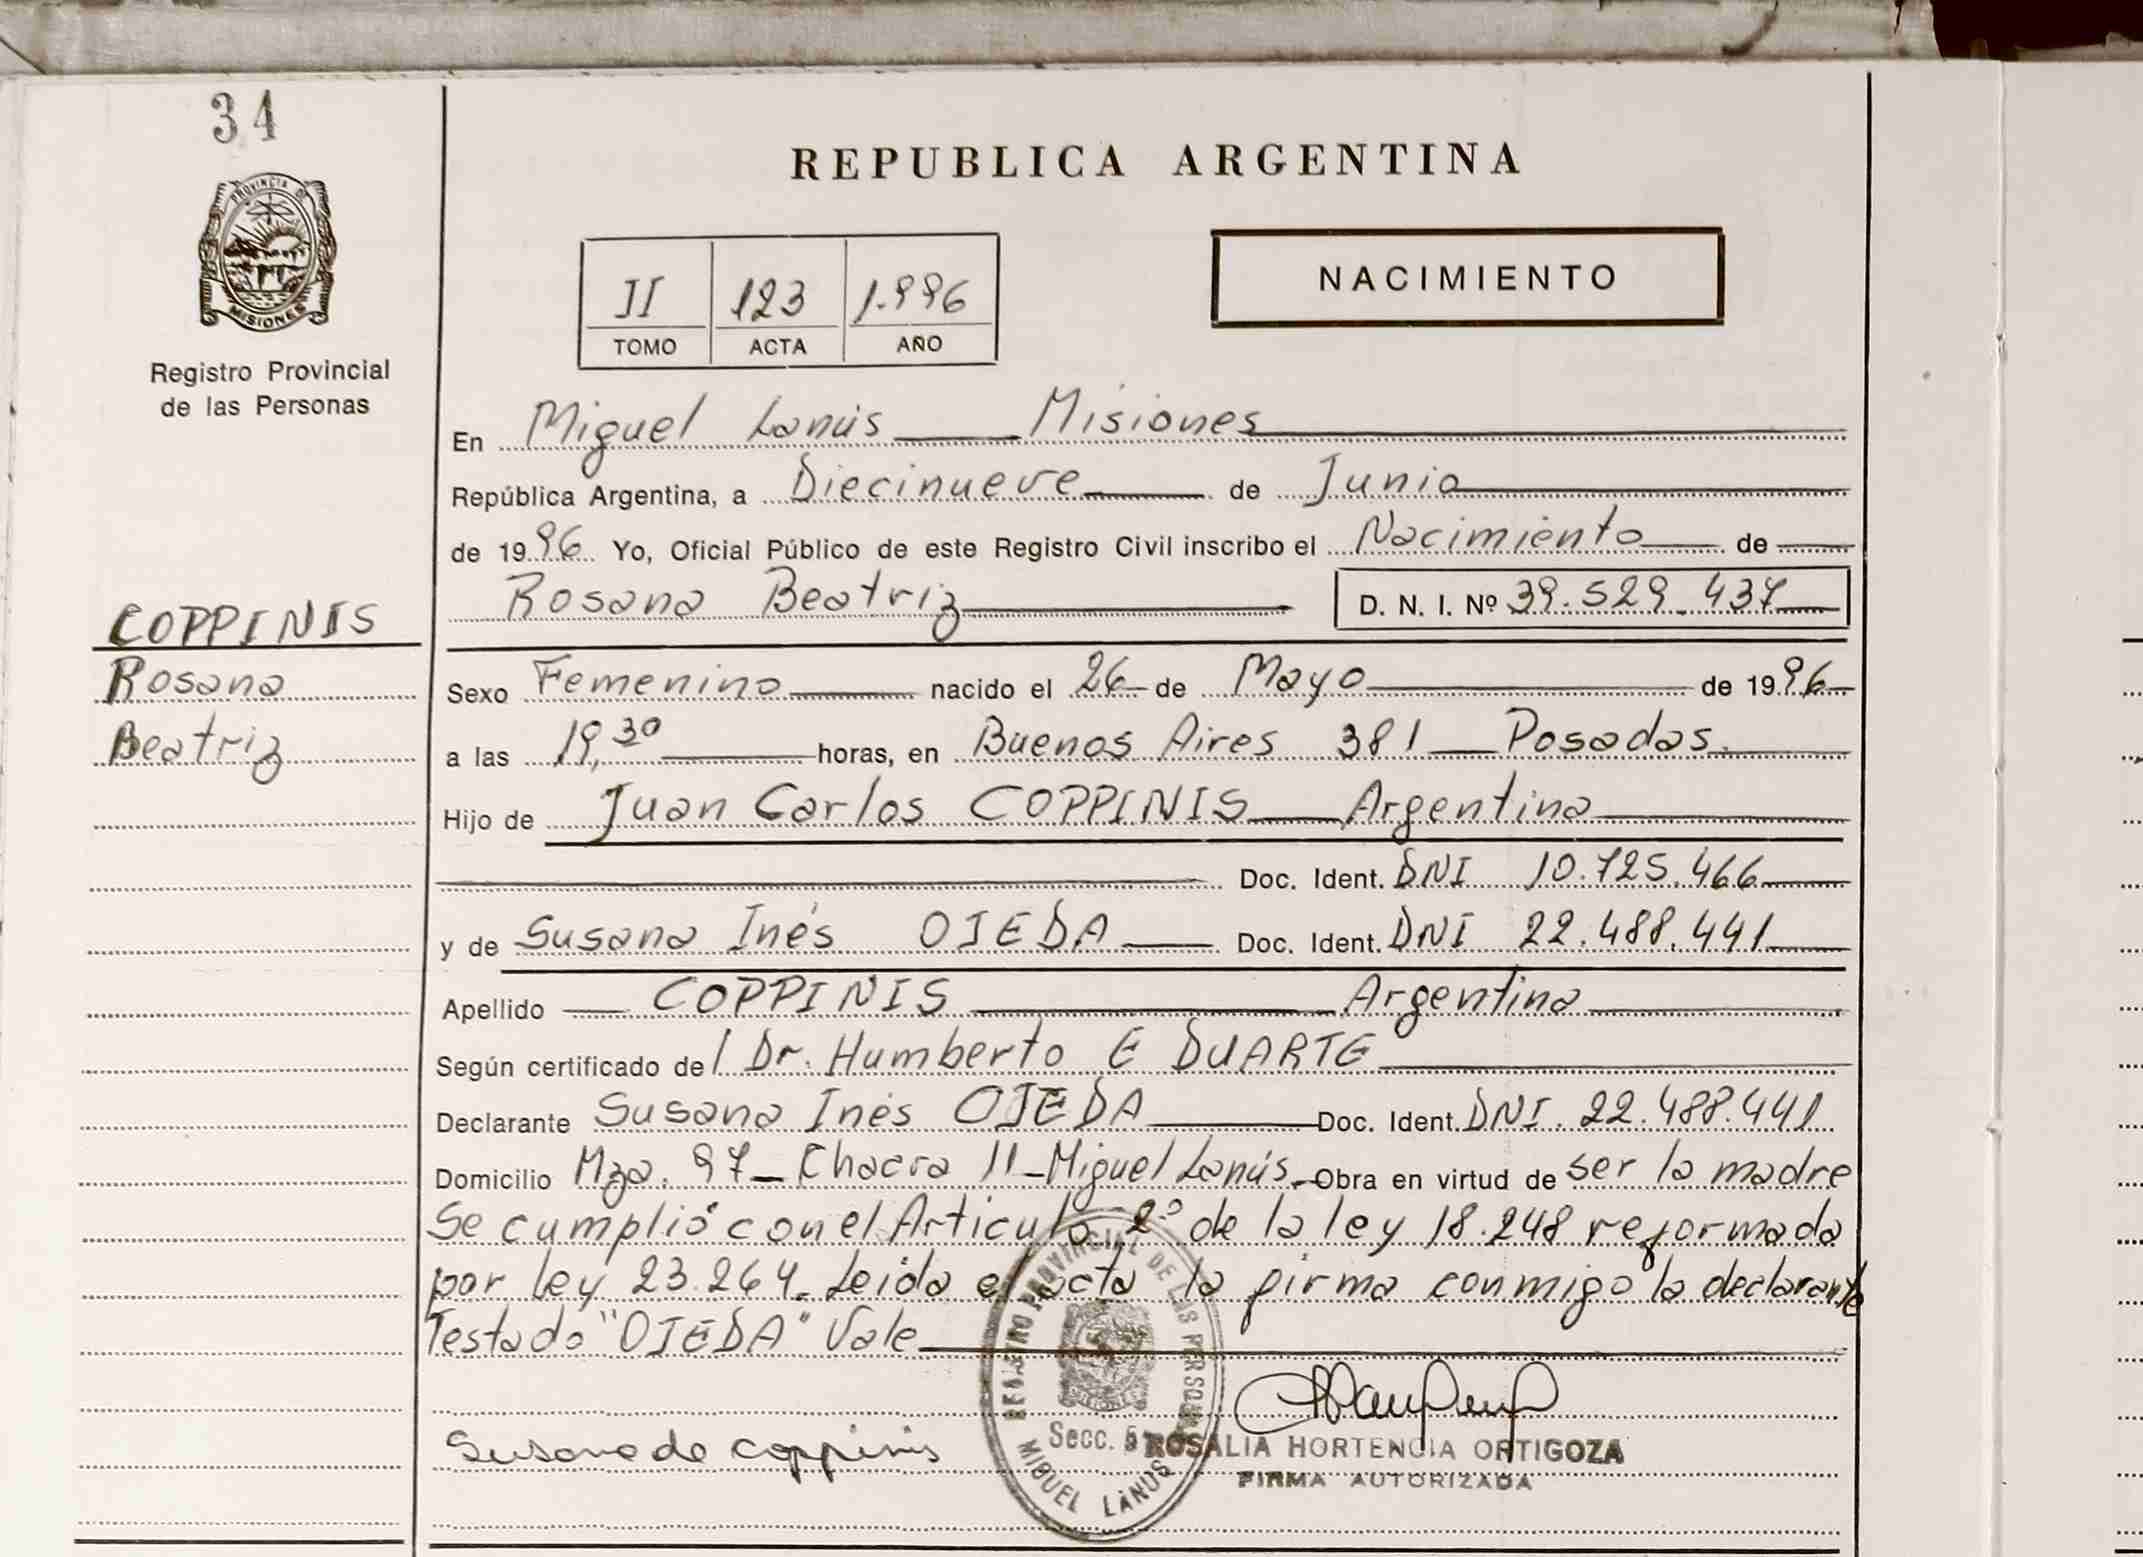 34
PROVINCIA DE
MISIONES
Registro Provincial
de las Personas
REPUBLICA ARGENTINA
II 123 1.996
TOMO ACTA AÑO
NACIMIENTO
En Miguel Lanús Misiones
República Argentina, a Diecinueve de Junio
de 1996 Yo, Oficial Público de este Registro Civil inscribo el Nacimiento de
Rosana Beatriz D. N. I. Nº 39.529.437
COPPINIS
Rosana
Beatriz
Sexo Femenino nacido el 26 de Mayo de 1996
a las 19,30 horas, en Buenos Aires 381 Posadas.
Hijo de Juan Carlos COPPINIS Argentina
Doc. Ident. DNI 10.725.466
y de Susana Inés OJEDA Doc. Ident. DNI 22.488.441
Apellido COPPINIS Argentina
Según certificado del Dr. Humberto E DUARTE
Declarante Susana Inés OJEDA Doc. Ident. DNI. 22.488.441
Domicilio Mza. 97 - Chacra 11 - Miguel Lanús. Obra en virtud de ser la madre
Se cumplió con el Articulo 2º de la ley 18.248 reformada
por ley 23.264. Leida el acta la firma conmigo la declarante
Testado "OJEDA" Vale
REGISTRO PROVINCIAL DE LAS PERSONAS
Secc. 5
MIGUEL LANUS
Susana de Coppinis
ROSALIA HORTENCIA ORTIGOZA
FIRMA AUTORIZADA